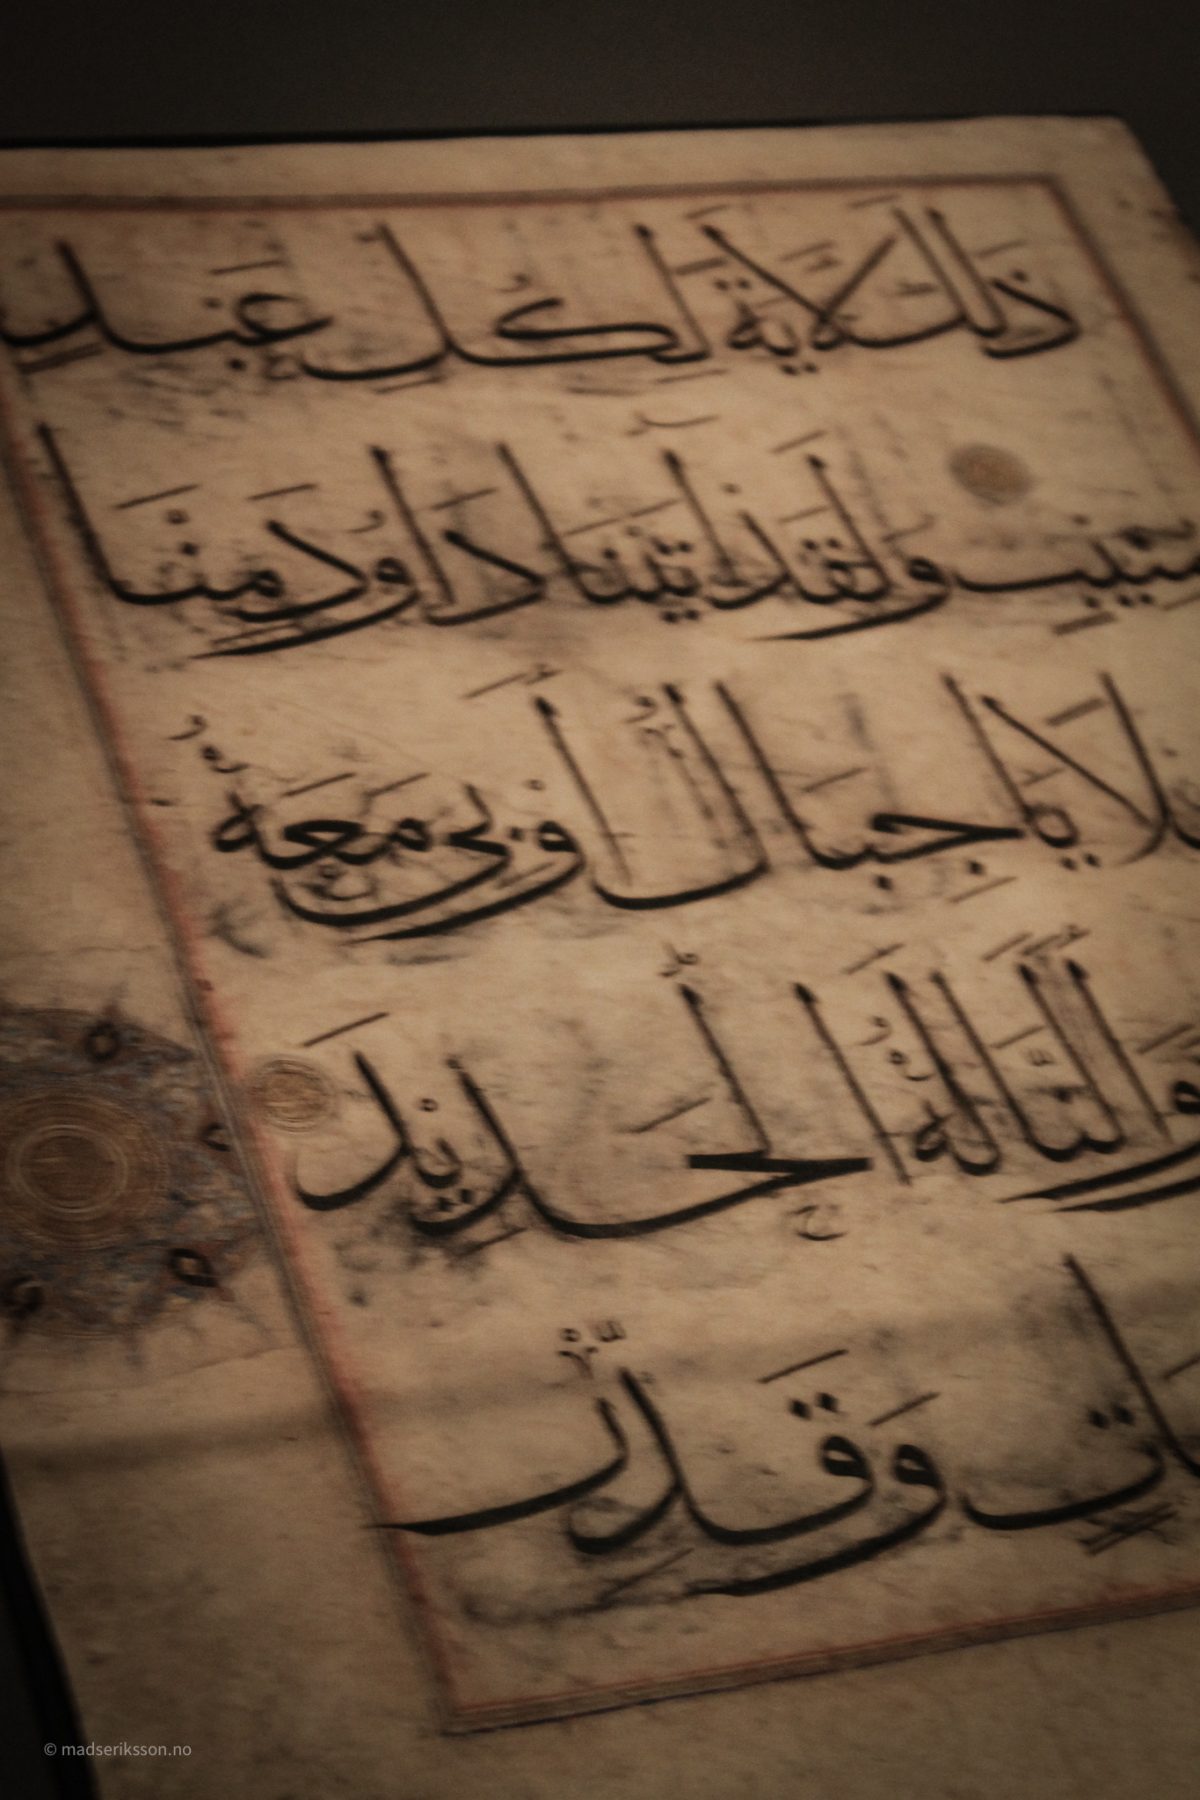 ذَلِكَ لَآيَةً لِكُلِّ عَبْدٍ
مُنِيبٍ وَلَقَدْ اٰتَيْنَا دَاوُدَ مِنَّا
فَضْلًا يَا جِبَالُ أَوِّبِي مَعَهُ
وَالطَّيْرَ وَأَلَنَّا لَهُ الْحَدِيدَ
وَقَدِّرْ
© madseriksson.no